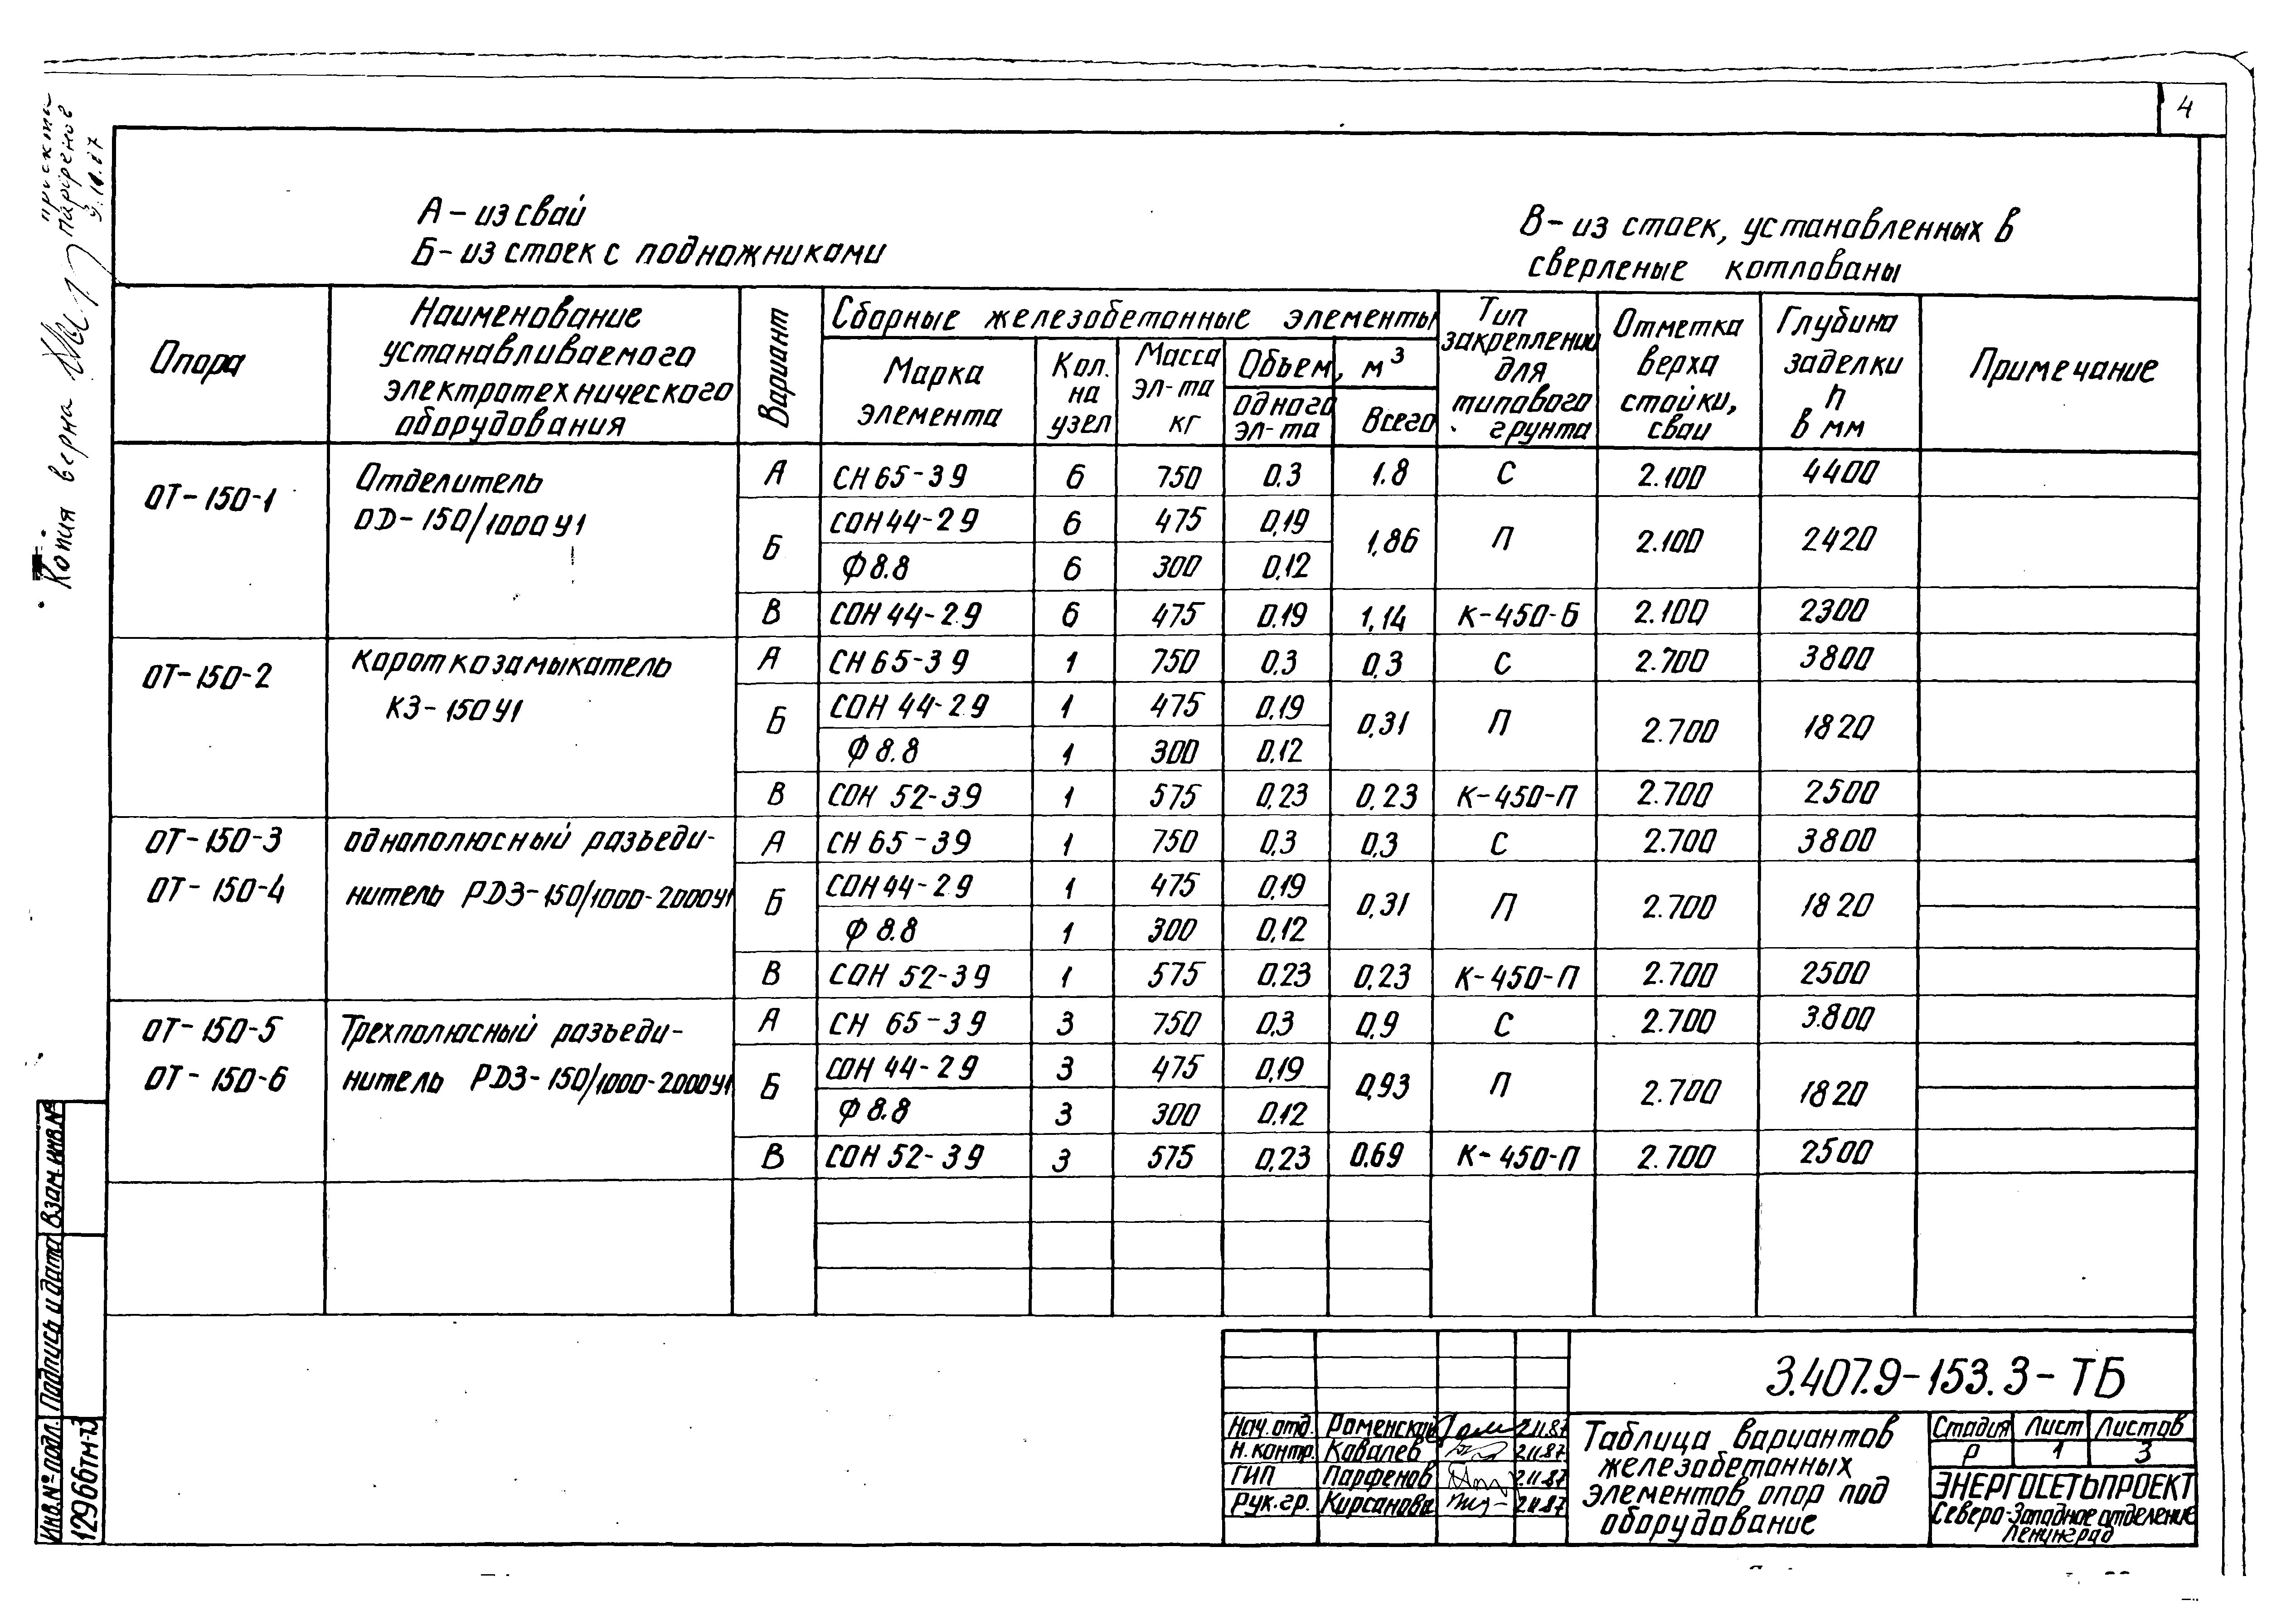 4
Копия верна
Парфенов
А - из свай
Б - из стоек с подножниками
В - из стоек, установленных в
сверленые котлованы
Опора
Наименование
устанавливаемого
электротехнического
оборудования
Вариант
Сборные железобетонные элементы
Марка
элемента
Кол.
на
узел
Масса
эл-та
кг
Объем, м³
одного
эл-та
Всего
Тип
закреплений
для
типового
грунта
Отметка
верха
стойки,
сваи
Глубина
заделки
h
в мм
Примечание
ОТ-150-1
Отделитель
ОД-150/1000У1
А СН65-39 6 750 0,3 1.8 С 2.100 4400
Б СОН44-29 6 475 0,19 1,86 П 2.100 2420
Ф8.8 6 300 0,12
В СОН44-29 6 475 0,19 1,14 К-450-Б 2.100 2300
ОТ-150-2
Короткозамыкатель
КЗ-150У1
А СН65-39 1 750 0,3 0,3 С 2.700 3800
Б СОН44-29 1 475 0,19 0,31 П 2.700 1820
Ф8.8 1 300 0,12
В СОН 52-39 1 575 0,23 0,23 К-450-П 2.700 2500
ОТ-150-3
ОТ-150-4
однополюсный разъеди-
нитель РДЗ-150/1000-2000У1
А СН 65-39 1 750 0,3 0,3 С 2.700 3800
Б СОН44-29 1 475 0,19 0,31 П 2.700 1820
Ф8.8 1 300 0,12
В СОН 52-39 1 575 0,23 0,23 К-450-П 2.700 2500
ОТ-150-5
ОТ-150-6
Трехполюсный разъеди-
нитель РДЗ-150/1000-2000У1
А СН 65-39 3 750 0,3 0,9 С 2.700 3.800
Б СОН 44-29 3 475 0,19 0,93 П 2.700 1820
Ф8.8 3 300 0,12
В СОН 52-39 3 575 0,23 0.69 К-450-П 2.700 2500
Взам. инв. №
Подпись и дата
Инв. № подл.
12966тм-т3
3.407.9-153.3-ТБ
Нач. отд. Роменский 2.11.87
Н. контр. Ковалев 2.11.87
ГИП Парфенов 2.11.87
Рук. гр. Кирсанова 2.11.87
Таблица вариантов
железобетонных
элементов опор под
оборудование
Стадия Лист Листов
Р 1 3
ЭНЕРГОСЕТЬПРОЕКТ
Северо-Западное отделение
Ленинград